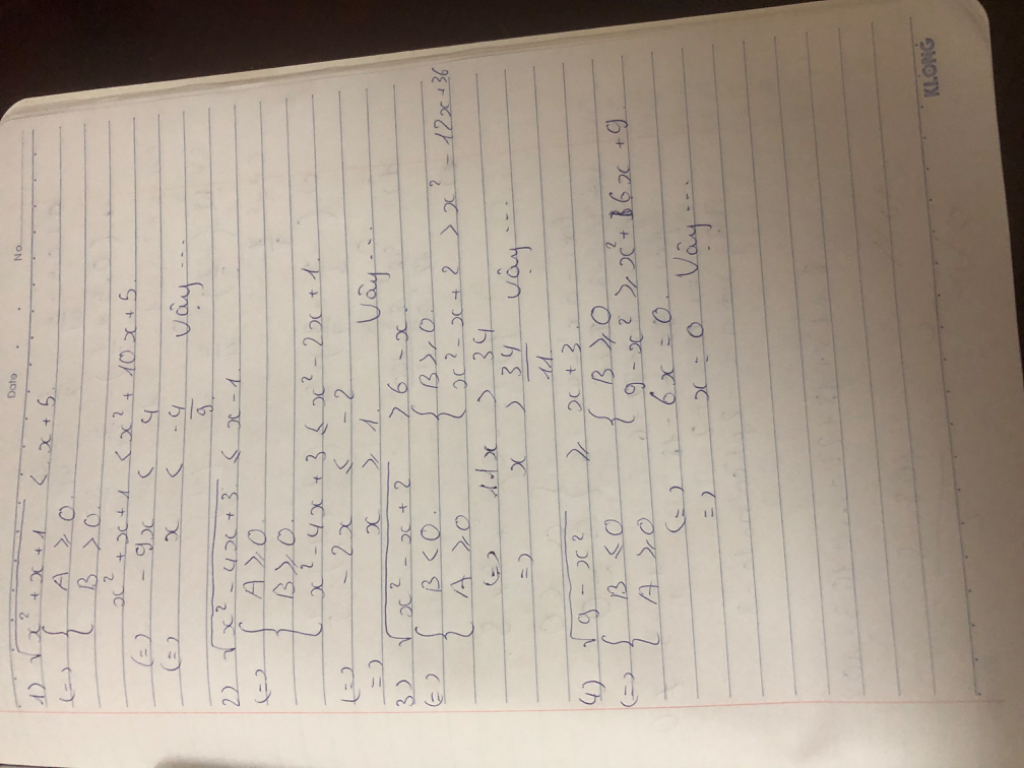 Date . . No.
1) √(x² + x + 1) < x + 5.
(=) { A ≥ 0.
{ B > 0.
x² + x + 1 < x² + 10x + 5.
(=) - 9x < 4
(=) x < -4/9 Vây ...
2) √(x² - 4x + 3) ≤ x - 1.
(=) { A ≥ 0.
B ≥ 0.
{ x² - 4x + 3 ≤ x² - 2x + 1.
(=) - 2x ≤ - 2
=) x ≥ 1. Vây ...
3) √(x² - x + 2) > 6 - x.
(=) { B < 0. { B ≥ 0.
{ A ≥ 0 { x² - x + 2 > x² - 12x + 36
(=) 11x > 34
=) x > 34/11 Vây ...
4) √(9 - x²) ≥ x + 3.
(=) { B ≤ 0 { B ≥ 0
{ A ≥ 0 { 9 - x² ≥ x² + 6x + 9.
(=) 6x = 0.
=) x = 0 Vây ...
KLONG